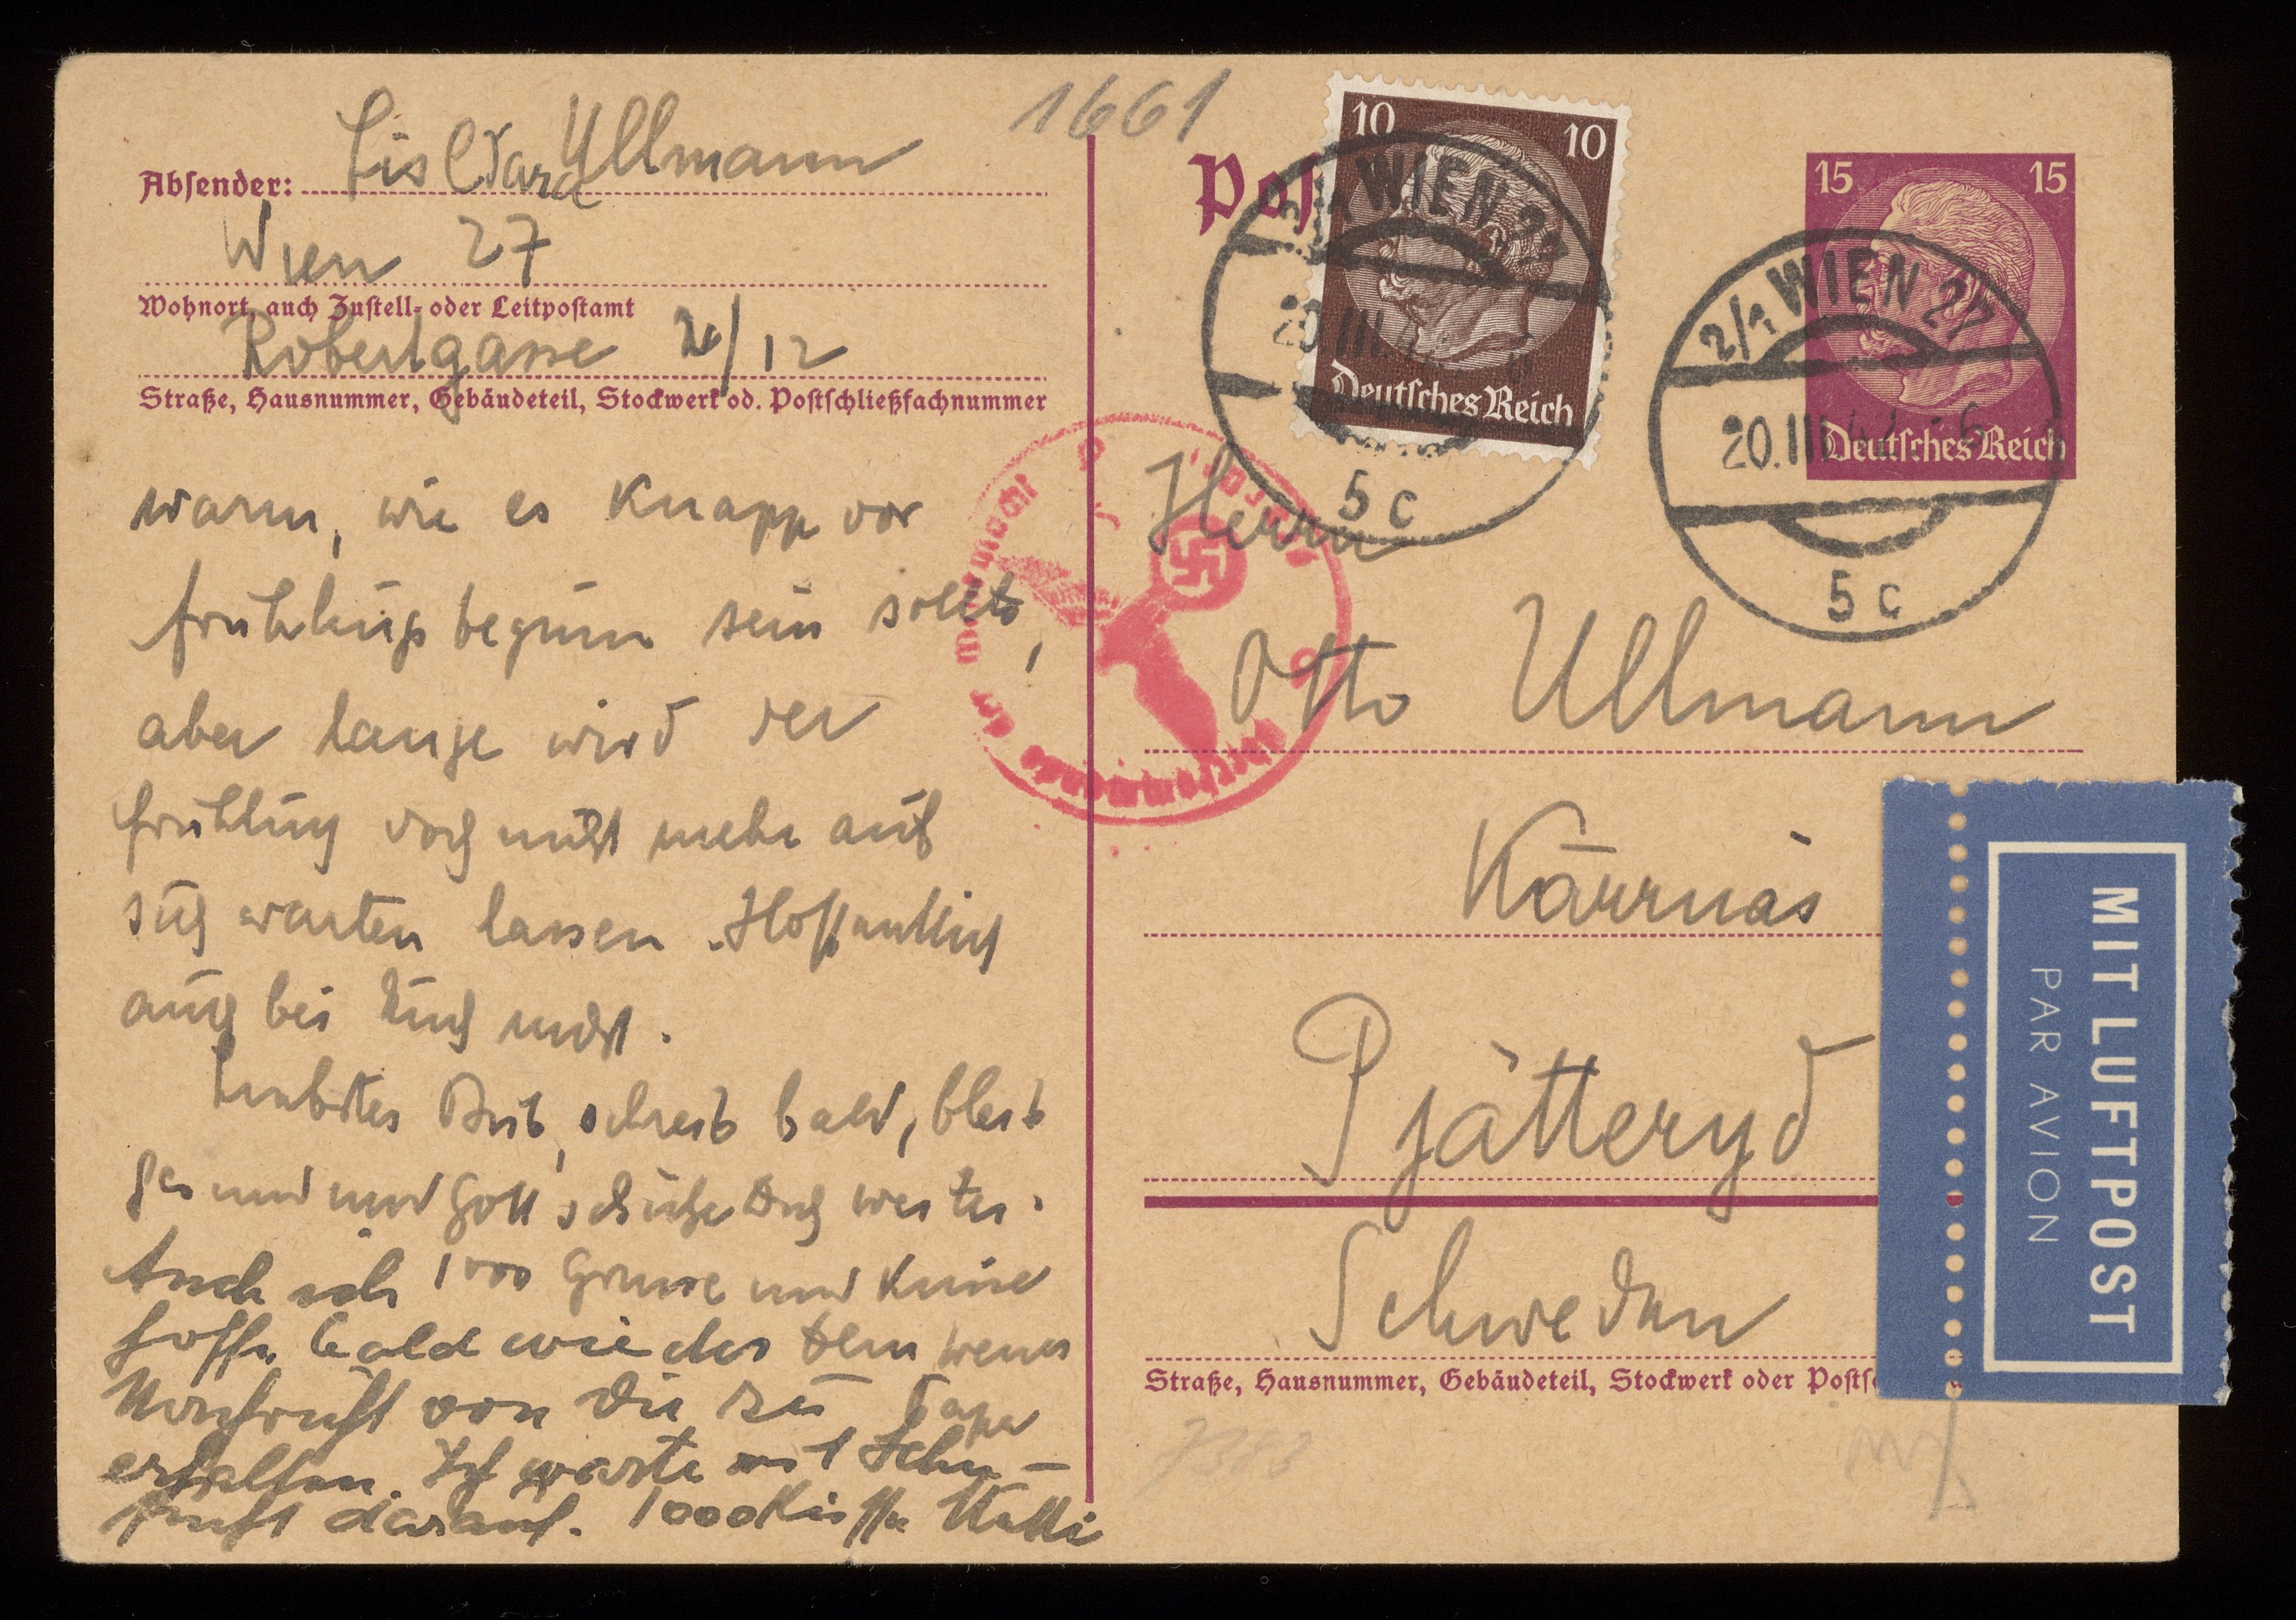 1661
Absender: Lisl Sara Ullmann
Wien 27
Wohnort, auch Zustell- oder Leitpostamt
Robertgasse /12
Straße, Hausnummer, Gebäudeteil, Stockwerk od. Postschließfachnummer
warm, wie es knapp vor
frühlingsbeginn sein sollte,
aber lange wird der
frühling doch nicht mehr auf
sich warten lassen. Hoffentlich
auch bei Euch nicht.
Liebstes Bub, schreib bald, bleib
gesund und Gott schütze Dich weiter.
Auch ich 1000 Grüsse und Küsse
Dein
Papa
hoffe bald wieder
Nachricht von Dir zu
erhalten. Ich warte mit Sehn-
sucht darauf. 1000 Küsse Mutti
Pos
10 10
Deutsches Reich
15 15
Deutsches Reich
2/1 WIEN 27
20.III.
5c
2/1 WIEN 27
20.III.42.-6
5c
Oberkommando der Wehrmacht
Herrn
Otto Ullmann
Kärrnäs
Pjätteryd
Schweden
Straße, Hausnummer, Gebäudeteil, Stockwerk oder Posts
MIT LUFTPOST
PAR AVION
7383